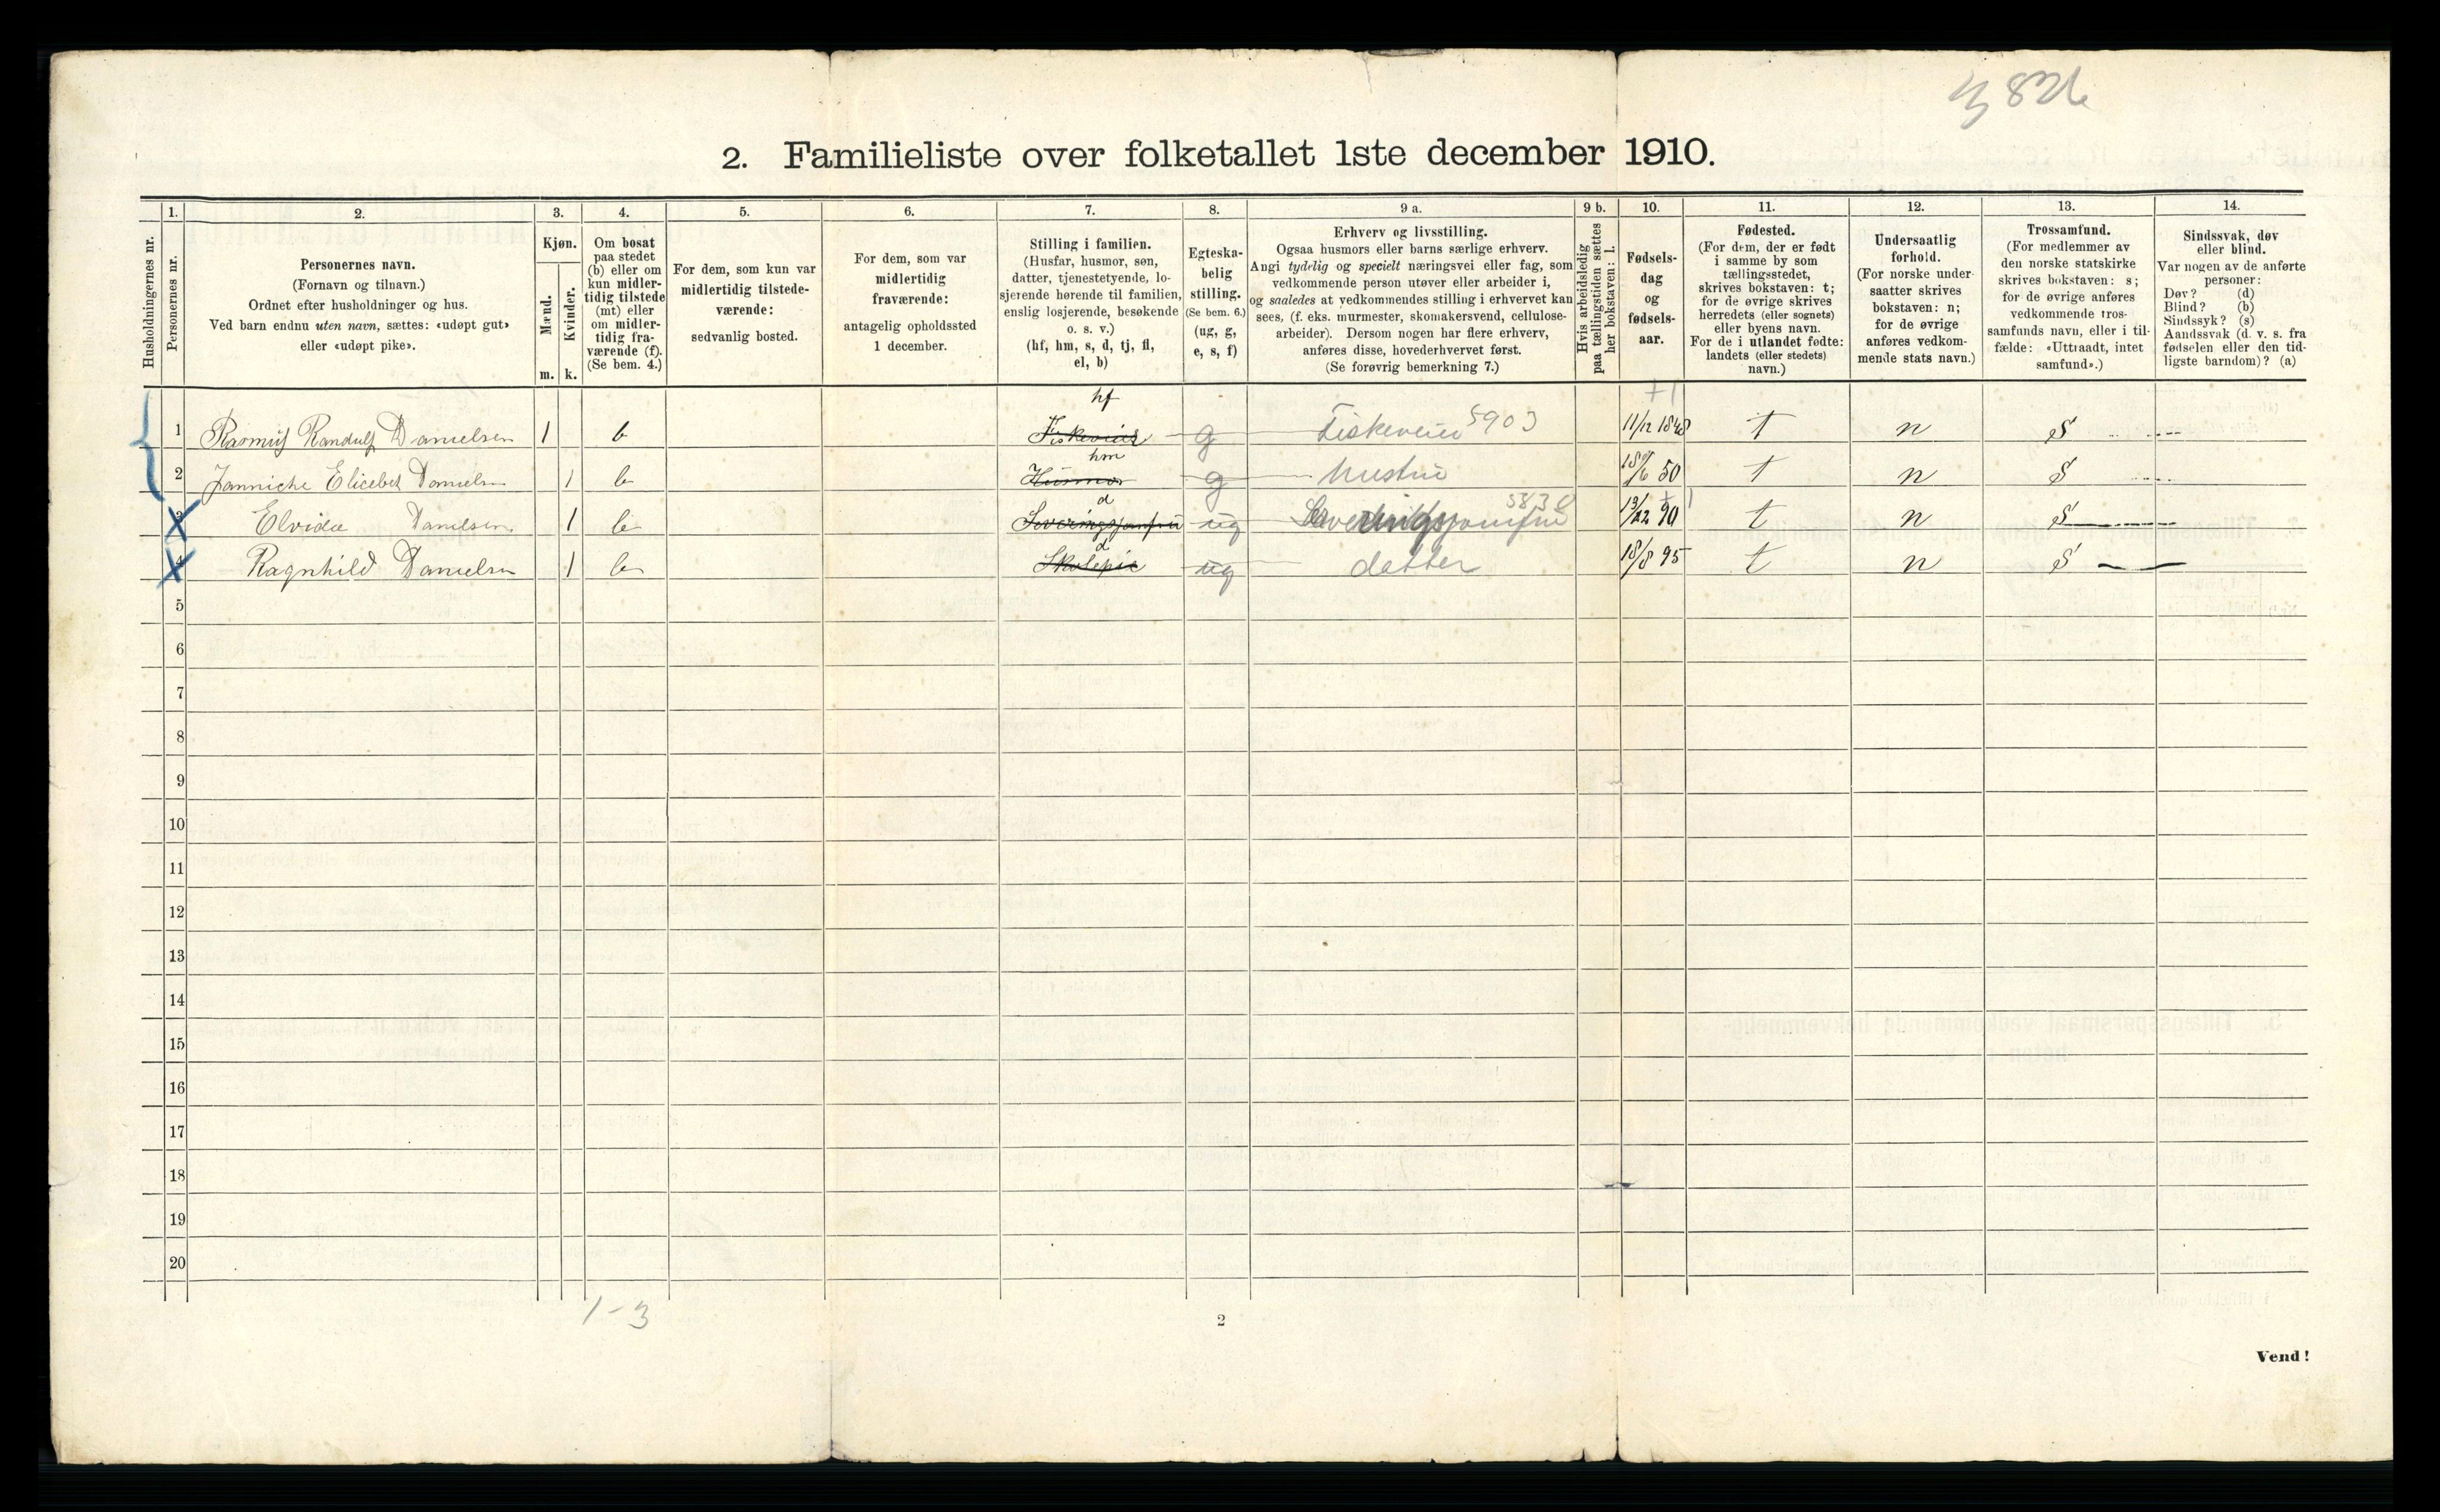 3826
2. Familieliste over folketallet 1ste december 1910.
Husholdningernes nr.
1.
Personernes nr.
2.
Personernes navn.
(Fornavn og tilnavn.)
Ordnet efter husholdninger og hus.
Ved barn endnu uten navn, sættes: «udøpt gut»
eller «udøpt pike».
3.
Kjøn.
Mænd.
Kvinder.
m. k.
4.
Om bosat
paa stedet
(b) eller om
kun midler-
tidig tilstede
(mt) eller
om midler-
tidig fra-
værende (f).
(Se bem. 4.)
5.
For dem, som kun var
midlertidig tilstede-
værende:
sedvanlig bosted.
6.
For dem, som var
midlertidig
fraværende:
antagelig opholdssted
1 december.
7.
Stilling i familien.
(Husfar, husmor, søn,
datter, tjenestetyende, lo-
sjerende hørende til familien,
enslig losjerende, besøkende
o. s. v.)
(hf, hm, s, d, tj, fl,
el, b)
8.
Egteska-
belig
stilling.
(Se bem. 6.)
(ug, g,
e, s, f)
9 a.
Erhverv og livsstilling.
Ogsaa husmors eller barns særlige erhverv.
Angi tydelig og specielt næringsvei eller fag, som
vedkommende person utøver eller arbeider i,
og saaledes at vedkommendes stilling i erhvervet kan
sees, (f. eks. murmester, skomakersvend, cellulose-
arbeider). Dersom nogen har flere erhverv,
anføres disse, hovederhvervet først.
(Se forøvrig bemerkning 7.)
9 b.
Hvis arbeidsledig
paa tællingstiden sættes
her bokstaven: l.
10.
Fødsels-
dag
og
fødsels-
aar.
11.
Fødested.
(For dem, der er født
i samme by som
tællingsstedet,
skrives bokstaven: t;
for de øvrige skrives
herredets (eller sognets)
eller byens navn.
For de i utlandet fødte:
landets (eller stedets)
navn.)
12.
Undersaatlig
forhold.
(For norske under-
saatter skrives
bokstaven: n;
for de øvrige
anføres vedkom-
mende stats navn.)
13.
Trossamfund.
(For medlemmer av
den norske statskirke
skrives bokstaven: s;
for de øvrige anføres
vedkommende tros-
samfunds navn, eller i til-
fælde: «Uttraadt, intet
samfund».)
14.
Sindssvak, døv
eller blind.
Var nogen av de anførte
personer:
Døv? (d)
Blind? (b)
Sindssyk? (s)
Aandssvak (d. v. s. fra
fødselen eller den tid-
ligste barndom)? (a)
1 Rasmus Randulf Danielsen 1 b hf Fiskeveier g Fiskeveier 5903 11/12 1848 t n S
2 Jannicke Elicebet Danielsen 1 b hm Husmor g hustru 18/6 50 t n S
3 Elvida Danielsen 1 b d Leveringsjomfru ug Leveringsjomfru 5830 13/12 90 t n S
4 Ragnhild Danielsen 1 b d Skolepie ug datter 18/8 95 t n S
5
6
7
8
9
10
11
12
13
14
15
16
17
18
19
20
1-3
2
Vend!